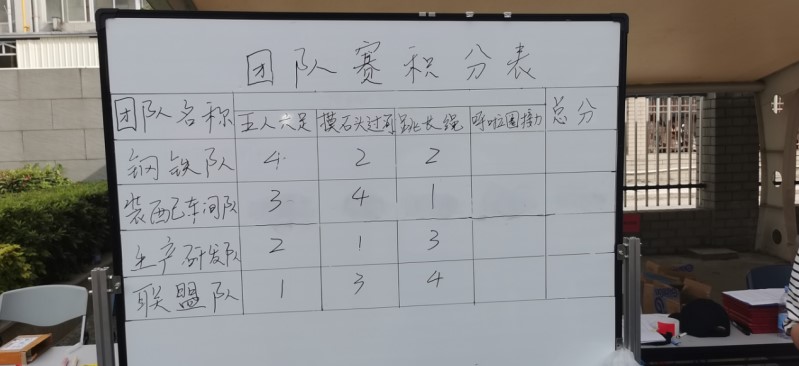 团队赛积分表
团队名称 五人六足 摸石头过河 跳长绳 呼啦圈接力 总分
钢铁队 4 2 2
装配车间队 3 4 1
生产研发队 2 1 3
联盟队 1 3 4